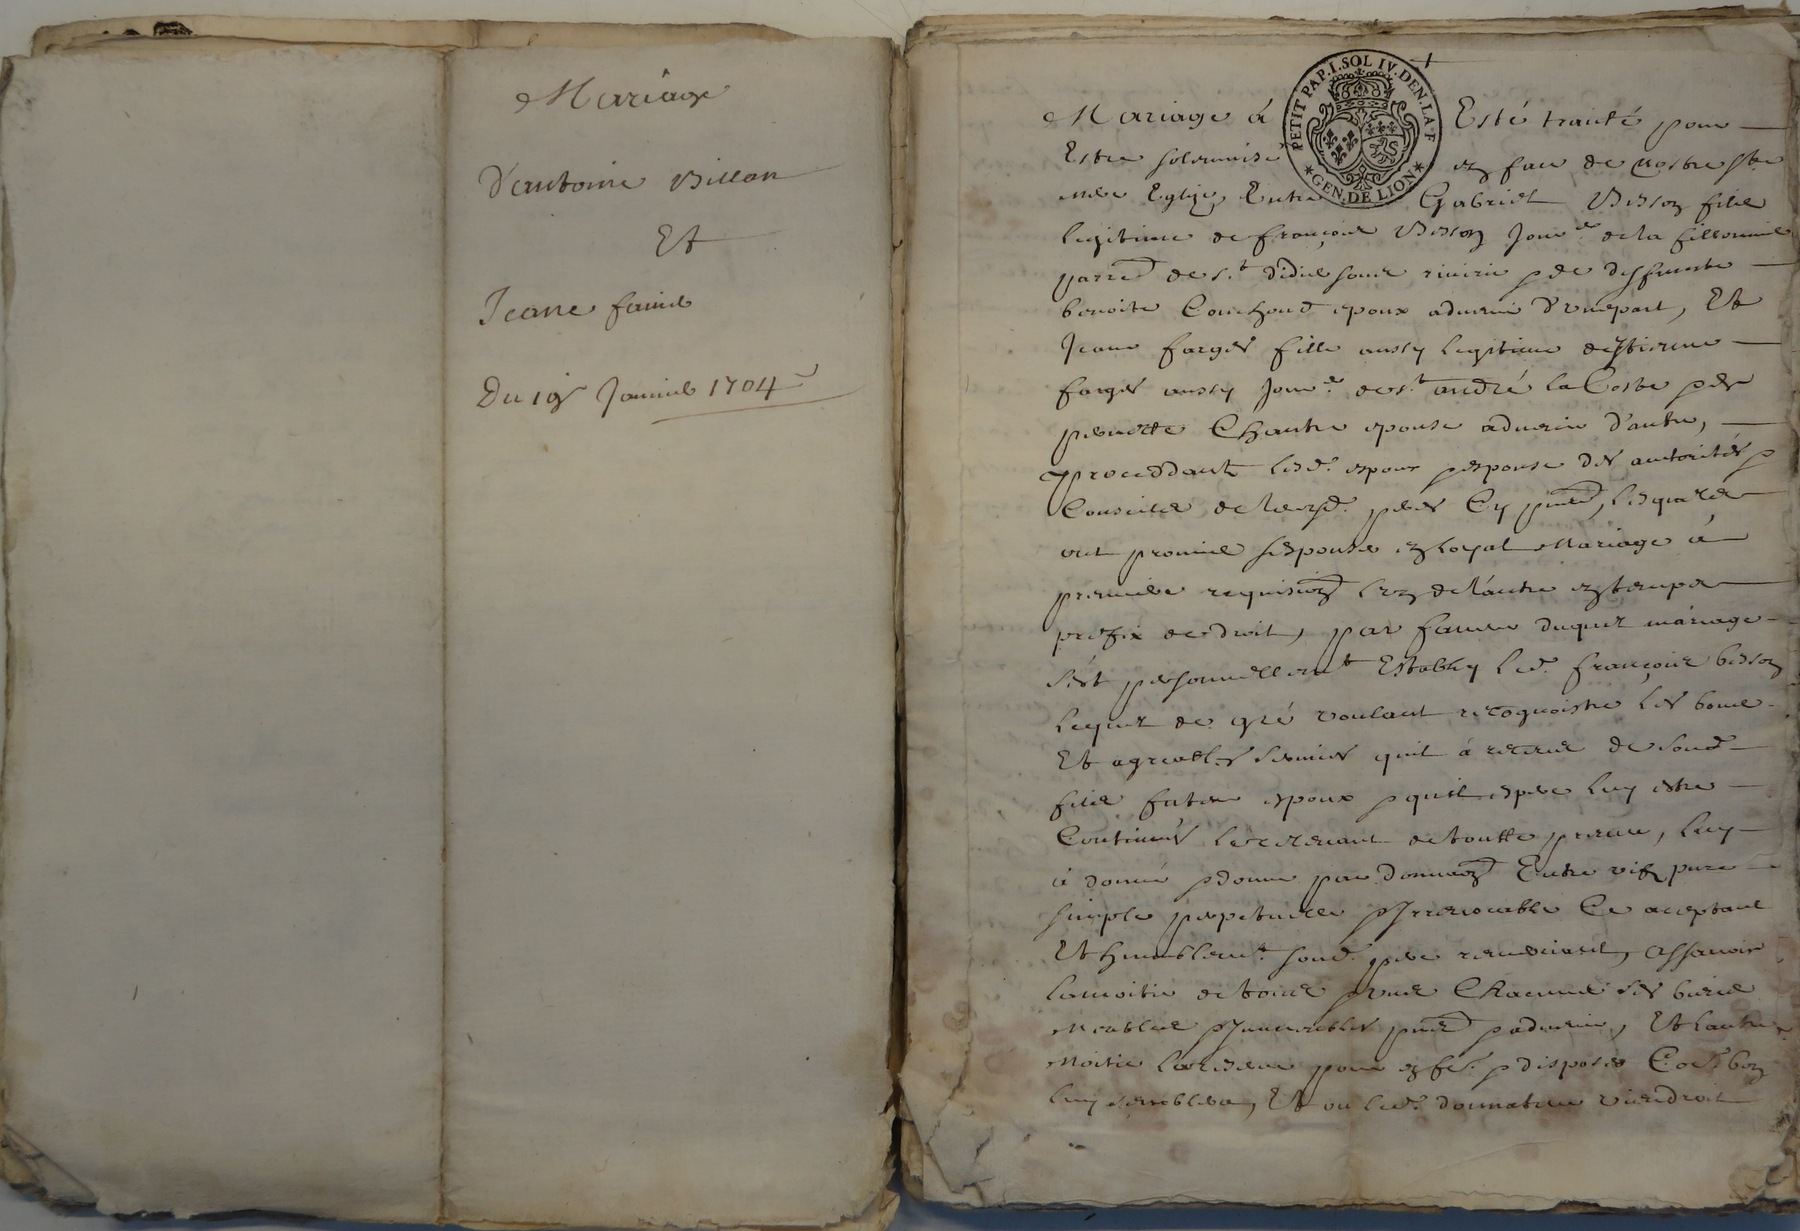 Mariage
D'antoine Billan
Et
Jeane faure
Du 19 Janvier 1704
PETIT PAP. I. SOL IV. DEN. LA F
GEN. DE LION
Mariage á Esté traité pour
Estre solemnisé en face de nostre ste
mere Eglize Entre Gabriel Bisson fils
legitime de françois Bisson Jour.r de la
parr.e de s.t didier soubz riverie & de deffuncte
benoite Couchoud epoux advenir d'une part, Et
Jeane farges fille aussy legitime d'estienne
farges aussy Jour.r de s.t andré la Coste & de
pernette Chantre epouse advenir d'autre,
proceddant lesd. espoux & espouse des authorités &
Conseils de leursd. peres Cy pnts, lesquels
ont promis s'espouser en loyal Mariage á
premiere requisiōn l'un de l'autre en temps
prefix de droit, par faveur duquel máriage
s'est personnellem.t Estably led. françois bisson
lequel de gré voulant recognoistre les bons
Et agreables services quil á receus de sond.
fils futur espoux & quil espere luy estre
Continués le relevant de toutte preuve, luy
á donné & donne par donnaōn Entre vifz pure
simple perpetuelle & Irrevocable Ce acceptant
Et humblem.t sond. pere remerciant, assavoir
la moitié de tous & uns Chacuns ses biens
Meubles & Immeubles pnts & advenir, Et l'autre
Moitié pour en fe. & disposer Coē bon
luy semblera, Et ou led. donnateur viendroit